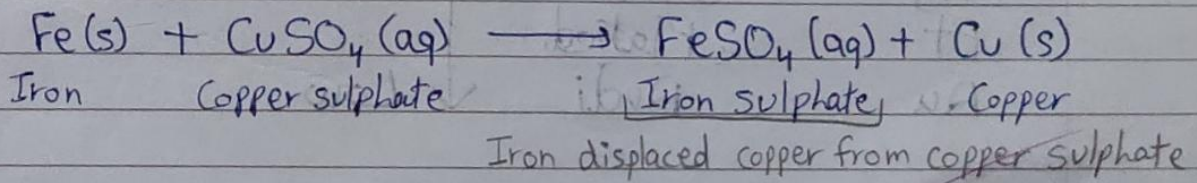 Fe(s) + CuSO₄ (aq) ⟶ FeSO₄ (aq) + Cu (s)
Iron Copper sulphate Irion sulphate Copper
Iron displaced copper from copper sulphate